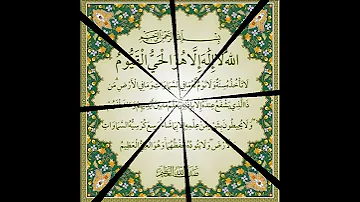 بِسْمِ اللَّهِ الرَّحْمَٰنِ الرَّحِيمِ
اللَّهُ لَا إِلَٰهَ إِلَّا هُوَ الْحَيُّ الْقَيُّومُ
لَا تَأْخُذُهُ سِنَةٌ وَلَا نَوْمٌ لَهُ مَا فِي السَّمَاوَاتِ وَمَا فِي الْأَرْضِ مَنْ
ذَا الَّذِي يَشْفَعُ عِنْدَهُ إِلَّا بِإِذْنِهِ يَعْلَمُ مَا بَيْنَ أَيْدِيهِمْ وَمَا خَلْفَهُمْ
وَلَا يُحِيطُونَ بِشَيْءٍ مِنْ عِلْمِهِ إِلَّا بِمَا شَاءَ وَسِعَ كُرْسِيُّهُ السَّمَاوَاتِ
وَالْأَرْضَ وَلَا يَئُودُهُ حِفْظُهُمَا وَهُوَ الْعَلِيُّ الْعَظِيمُ
صَدَقَ اللَّهُ الْعَظِيمُ